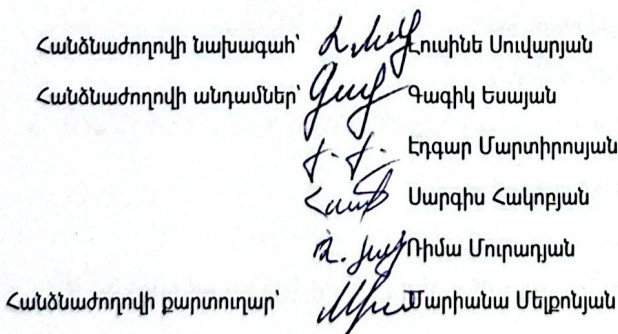 Հանձնաժողովի նախագահ՝ Լուսինե Սուվարյան
Հանձնաժողովի անդամներ՝ Գագիկ Եսայան
Էդգար Մարտիրոսյան
Սարգիս Հակոբյան
Ռիմա Մուրադյան
Հանձնաժողովի քարտուղար՝ Մարիանա Մելքոնյան